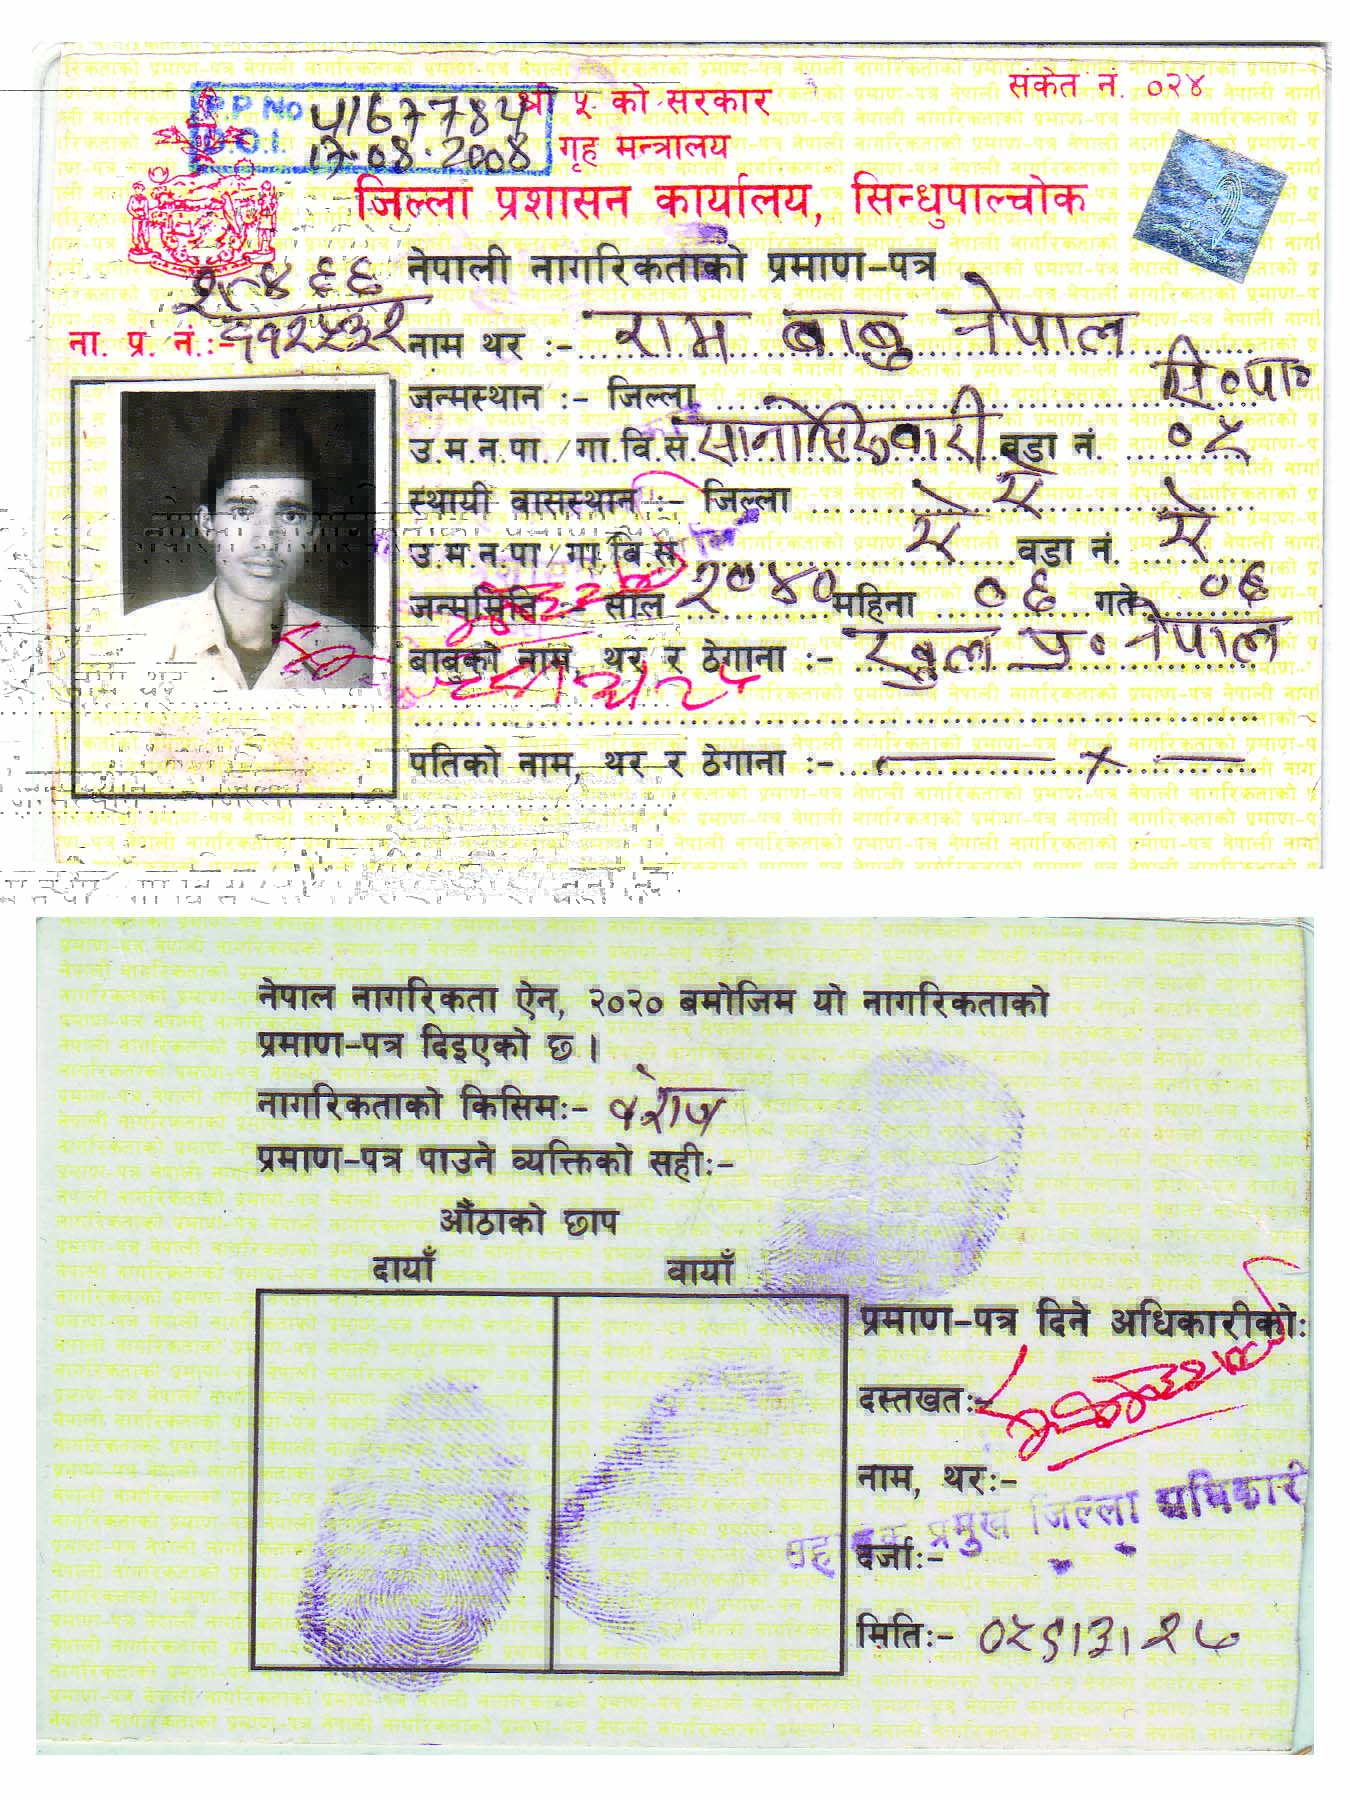 संकेत नं. ०२४
P.P No 4167784
D.O.I. 17.08.2008
श्री ५ को सरकार
गृह मन्त्रालय
जिल्ला प्रशासन कार्यालय, सिन्धुपाल्चोक
नेपाली नागरिकताको प्रमाण-पत्र
ना. प्र. नं.:-
नाम थर :- राम बाबु नेपाल
जन्मस्थान :- जिल्ला सि०पा०
उ.म.न.पा./गा.वि.स. सानोसिरुवारी वडा नं. ०५
स्थायी वासस्थान :- जिल्ला ऐ ऐ
उ.म.न.पा/गा.वि.स. ऐ वडा नं. ऐ
जन्ममिति :- साल २०४० महिना ०६ गते ०६
बाबुको नाम, थर र ठेगाना :- प्र० नेपाल
पतिको नाम, थर र ठेगाना :- x
नेपाल नागरिकता ऐन, २०२० बमोजिम यो नागरिकताको
प्रमाण-पत्र दिइएको छ ।
नागरिकताको किसिम:- वंशज
प्रमाण-पत्र पाउने व्यक्तिको सही:-
औंठाको छाप
दायाँ वायाँ
प्रमाण-पत्र दिने अधिकारीको:
दस्तखत:-
नाम, थर:-
प्रमुख जिल्ला अधिकारी
दर्जा:-
मिति:- ०५९।३।२७